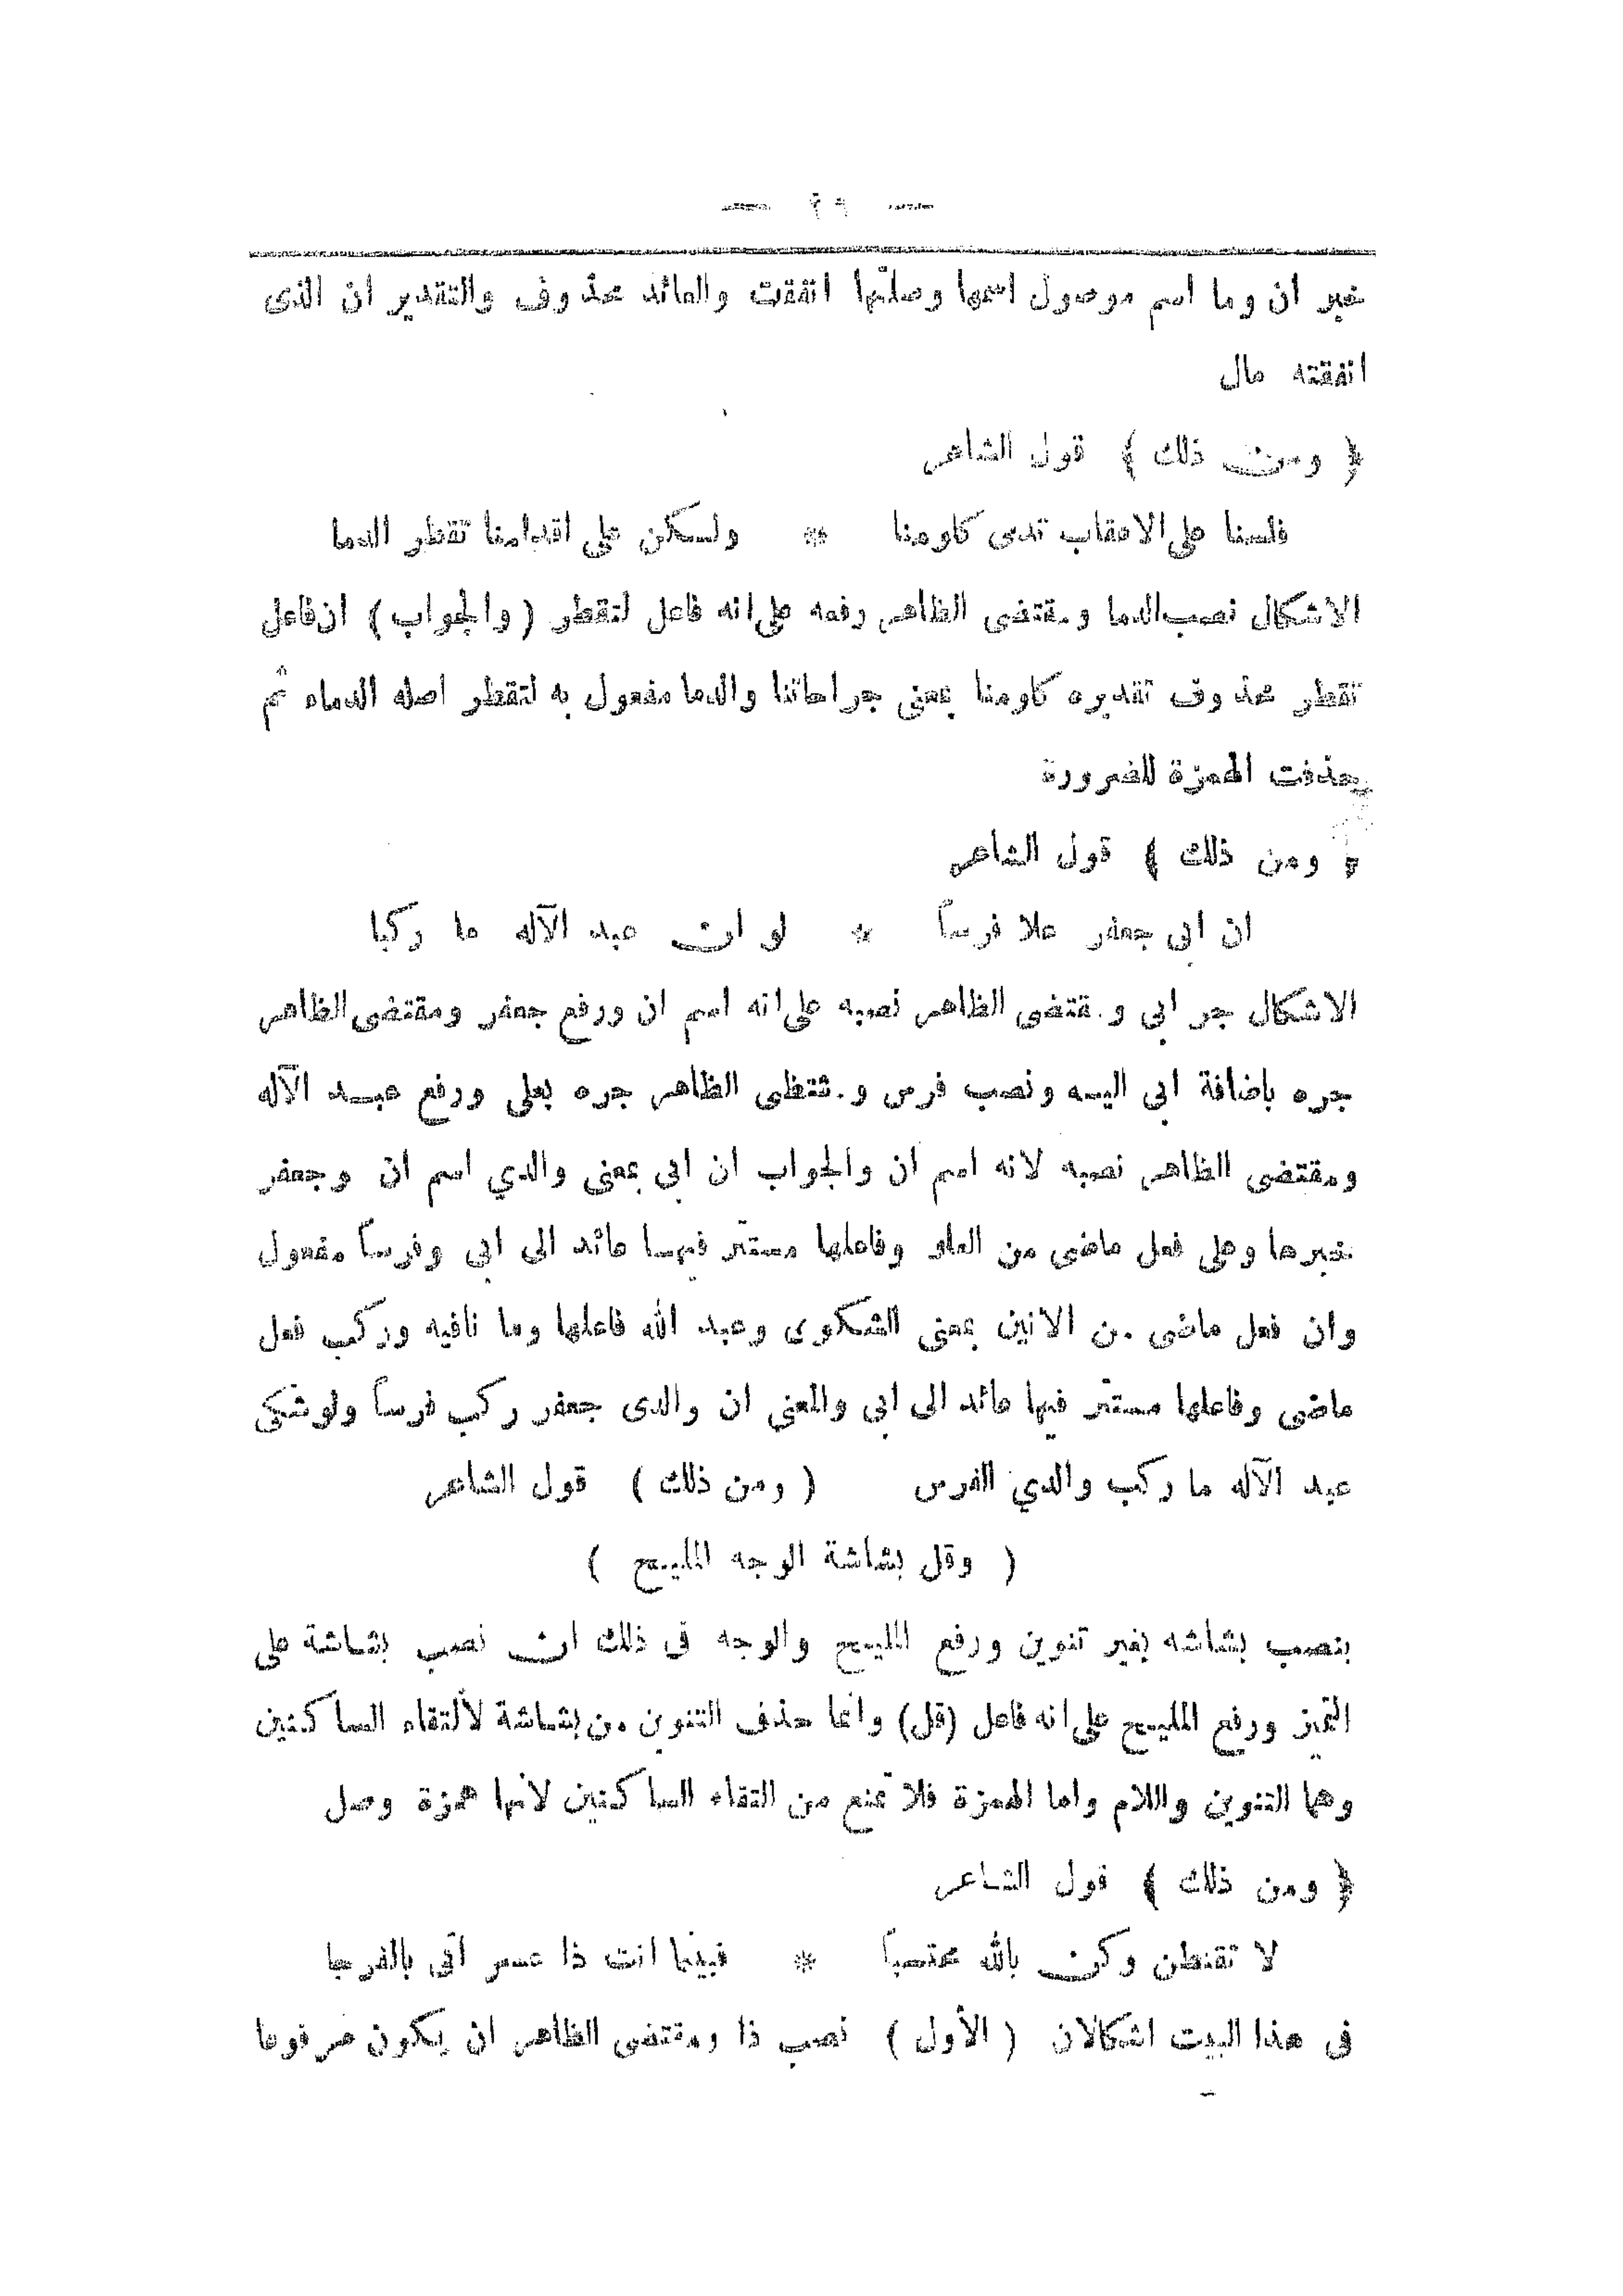 — ٢٩ —
خبر ان وما اسم موصول اسمها وصلتها انفقت والعائد محذوف والتقدير ان الذى
انفقته مال
﴿ ومن ذلك ﴾ قول الشاعر
فلسنا على الاعقاب تدمى كلومنا * ولكن على اقدامنا تقطر الدما
الاشكال نصب الدما ومقتضى الظاهر رفعه على انه فاعل لتقطر ( والجواب ) ان فاعل
تقطر محذوف تقديره كلومنا بمعنى جراحاتنا والدما مفعول به لتقطر اصله الدماء ثم
حذفت الهمزة للضرورة
﴿ ومن ذلك ﴾ قول الشاعر
ان ابى جعفر علا فرساً * لو ان عبد الآله ما ركبا
الاشكال جر ابي ومقتضى الظاهر نصبه على انه اسم ان ورفع جعفر ومقتضى الظاهر
جره باضافة ابى اليه ونصب فرس ومقتظى الظاهر جره بعلى ورفع عبد الآله
ومقتضى الظاهر نصبه لانه اسم ان والجواب ان ابى بمعنى والدي اسم ان وجعفر
خبرها وعلى فعل ماضى من العلو وفاعلها مستتر فيها عائد الى ابى وفرساً مفعول
وان فعل ماضى من الانين بمعنى الشكوى وعبد الله فاعلها وما نافيه وركب فعل
ماضى وفاعلها مستتر فيها عائد الى ابى والمعنى ان والدى جعفر ركب فرساً ولو شكى
عبد الآله ما ركب والدي الفرس ( ومن ذلك ) قول الشاعر
( وقل بشاشة الوجه المليح )
بنصب بشاشه بغير تنوين ورفع المليح والوجه فى ذلك ان نصب بشاشة على
التميز ورفع المليح على انه فاعل (قل) وانما حذف التنوين من بشاشة لألتقاء الساكنين
وهما التنوين واللام واما الهمزة فلا تمنع من التقاء الساكنين لانها همزة وصل
﴿ ومن ذلك ﴾ قول الشاعر
لا تقنطن وكن بالله محتسباً * فبينما انت ذا عسر أتى بالفرجا
فى هذا البيت اشكالان ( الأول ) نصب ذا ومقتضى الظاهر ان يكون مرفوعا